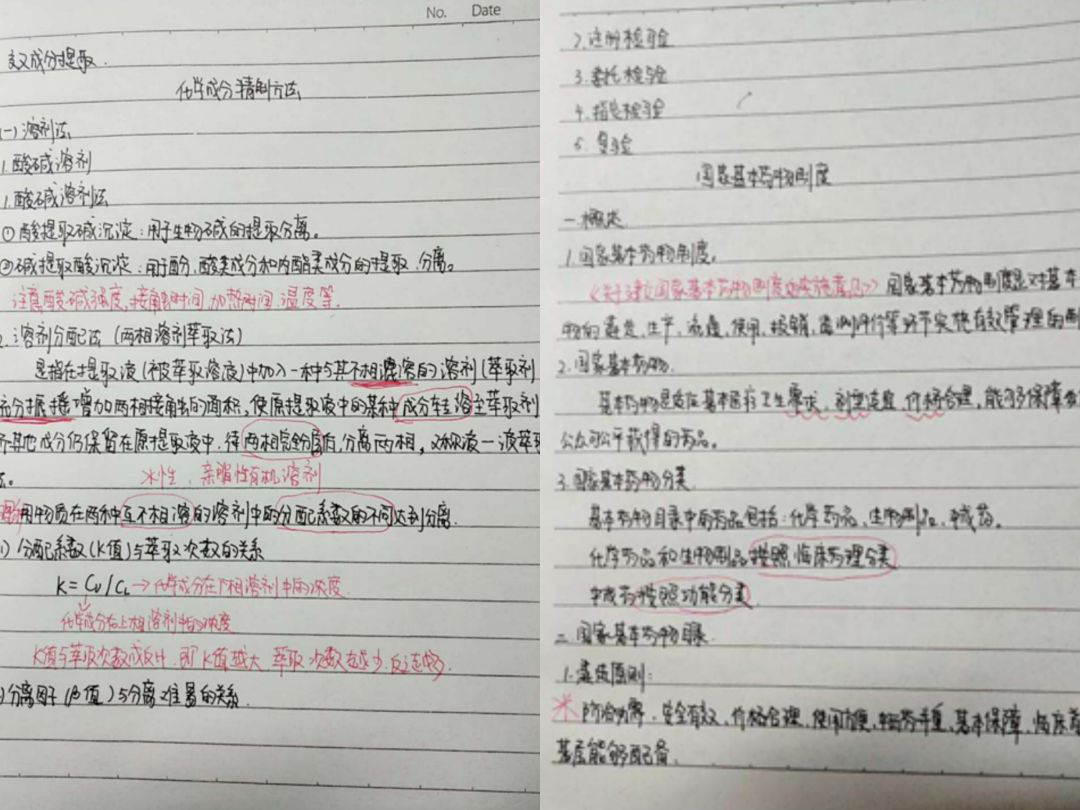 No. Date
成分提取.
化学成分精制方法
(一)溶剂法
1.酸碱溶剂
1.酸碱溶剂法
①酸提取碱沉淀:用于生物碱的提取分离。
②碱提取酸沉淀:用于酚、酸类成分和内酯类成分的提取、分离。
注意酸碱强度,接触时间,加热时间,温度等。
2.溶剂分配法(两相溶剂萃取法)
是指在提取液(被萃取溶液)中加入一种与其不相混溶的溶剂(萃取剂
充分振摇增加两相接触的面积,使原提取液中的某种成分 溶 萃取剂
其他成分仍保留在原提取液中,待两相完全分层后,分离两相,又称液—液萃取
法。
水性、亲脂性有机溶剂
用物质在两种互不相溶的溶剂中的分配系数的不同达到分离.
1)分配系数(K值)与萃取次数的关系
K=Cu/CL→化学成分在下相溶剂中的浓度.
化学成分在上相溶剂中的浓度
K值与萃取次数成反比,即K值越大,萃取次数越少,反之越多.
)分离因子(β值)与分离难易的关系.
2.注册检验
3.委托检验
4.指定检验
5.复验
国家基本药物制度
一.概述
1.国家基本药物制度。
《关于建立国家基本药物制度的实施意见》国家基本药物制度是对基本
物的遴选、生产、流通、使用、报销、监测评价等环节实施有效管理的制
2.国家基本药物.
基本药物是适应基本医疗卫生要求,剂型适宜,价格合理,能够保障供
公众可公平获得的药品。
3.国家基本药物分类.
基本药物目录中的药品包括:化学药品、生物制品、中成药。
化学药品和生物制品按照临床药理分类
中成药按照功能分类.
二.国家基本药物目录.
1.遴选原则:
防治必需、安全有效、价格合理、使用方便、中西药并重、基本保障、临床首
基层能够配备.